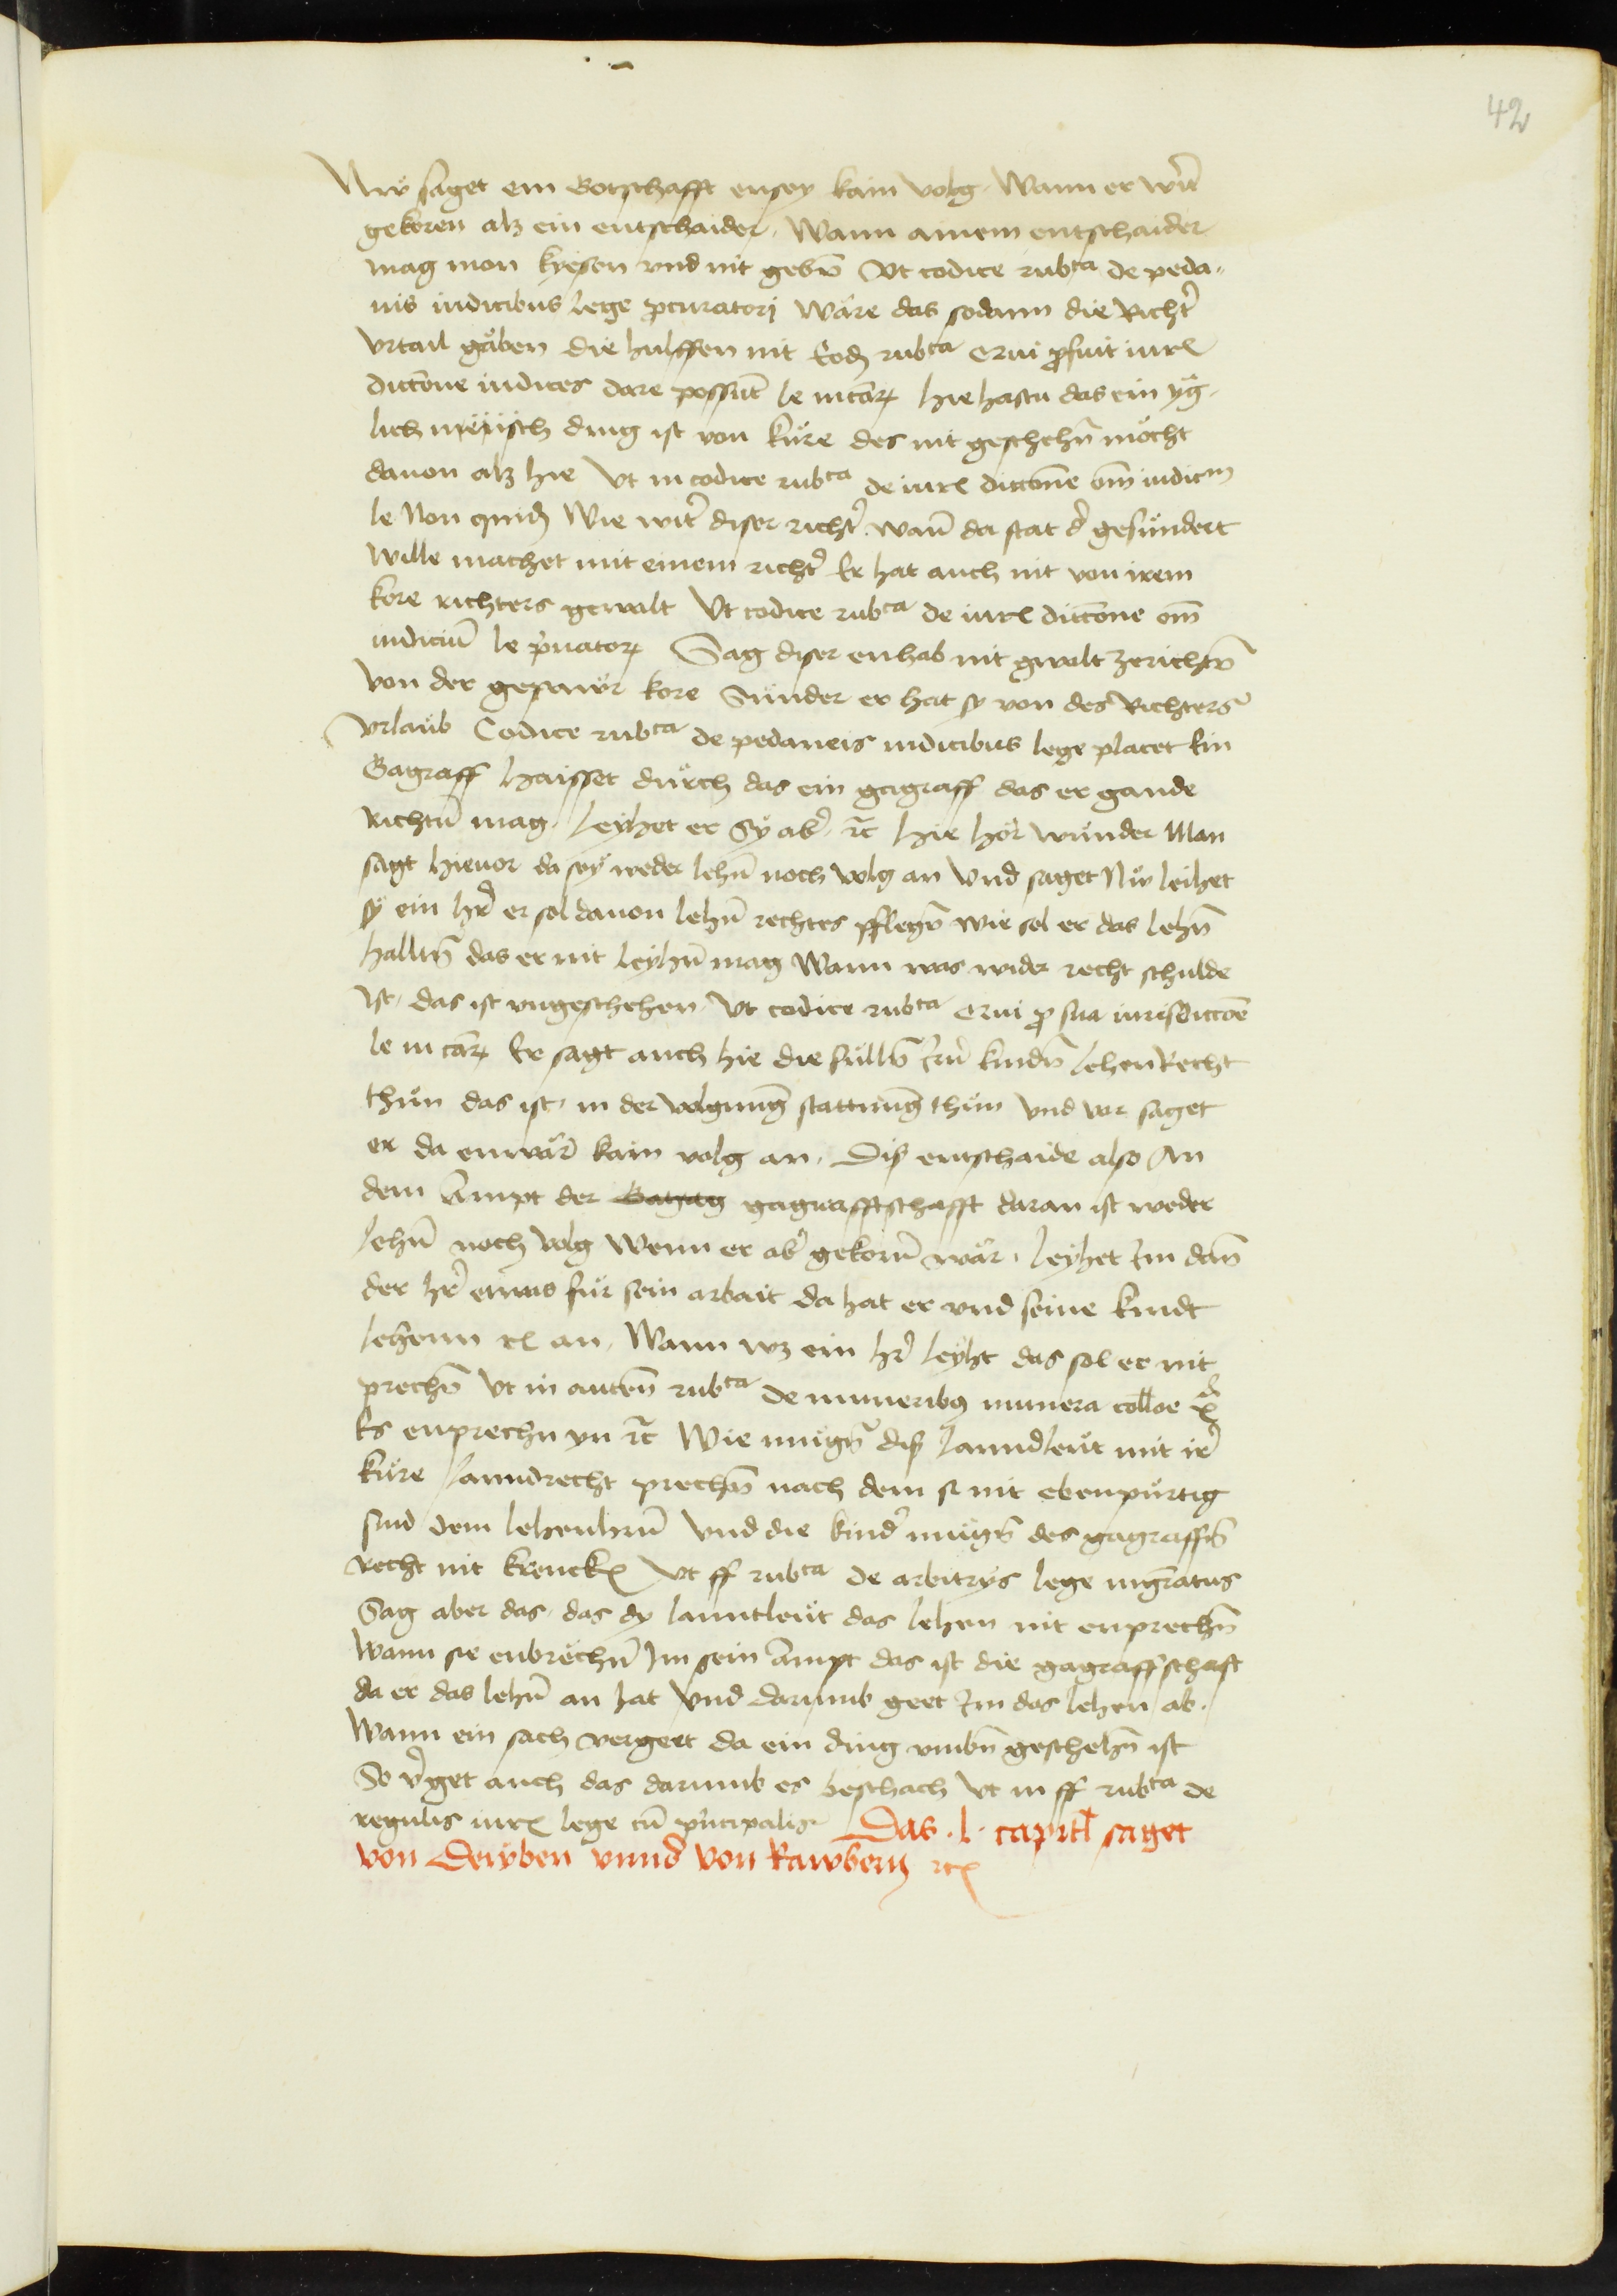 42
Nw saget ein Botschafft ensey kain volg. Wann er wirt
gekoren alz ein entschaider. Wann ainem entschaider
mag mon kyesen vnd nit gebn̄ Vt codice rubca de peda„
nis iudicibus lege pcuratorj Wäre das sodann die Richt̄
vrtail gäben die hulffen nit Eod rubca
dictōne iudices dare possūt le in cār hie hastu das ein yg„
lich ding ist von küre des nit geschehn̄ möcht
dauon alz hie Vt in codice rubca de iure dictōne om̄ iudicm
le Non quid Wie wirt diser richt̄ wan̄ da stat d̄ gesundert
Wille machet mit einem richt̄ Er hat auch nit von irem
kore richters gewalt Vt codice rubca de iure dictōne om̄
iudiciū le priuator Sag diser enhab nit gwalt zerichtn̄
von der kore Sunder er hat sy von des Richters
vrlaub Codice rubca de pedaneis iudicibus lege placet Ein
Gagraff haisset durch das ein gagraff das er gaude
Richtn̄ mag. leyhet er Sy ab̄ rc̄ hie hör wunder Man
sagt hieuor da sey weder lehn̄ noch volg an Vnd saget Nw leihet
sy ein hr̄ er sol dauon lehn̄ rechtes pflegn̄ wie sol er das lehn̄
halltn̄ das er nit leyhn̄ mag Wann was wider recht schulde
ist, das ist vngeschehen Vt codice rubca pro sua iurisdictōe
le in cār Er sagt auch hie die süllen̄ Irn̄ kindn̄ lehen Recht
thun das ist, in der volgung stattnung thun Vnd vor saget
er da enwär kain volg an. Diß entschaide also An
dem Ampt der gagrafftschafft daran ist weder
lehn̄ noch volg Wenn er ab̄ gekorn̄ wär. leyhet Im dan̄
der hr̄ etwas für sein arbait da hat er vnd seine kindt
lehenn rc an. Wann wz ein hr̄ leyht das sol er nit
prechn̄ Vt in auten̄ rubca de muneribus munera colloe
Es enprechn yn rc̄ Wie mugn̄ diß lanndleut mit ir̄
küre lanndrecht prechn̄ nach dem si nit ebenpürtig
sind dem lehenhrn̄ Vnd die kind̄ mugn̄ des gagraffn̄
recht nit krenckn Vt ff rubca de arbitrys lege
Sag aber das, das dy lanntleut das lehen nit enprechn̄
Wann sie enbrechn̄ Im sein Ampt das ist die gagraffschaft
da er das lehn̄ an hat Vnd darumb geet Im das lehen ab.
Wann ein sach vergeet da ein ding vmbn̄ geschehn̄ ist
So v̄get auch das darumb es beschach Vt in ff rubca de
regulis iure lege cū principalis Das .l. capitl saget
von Deyben vnnd von Rawbern rc